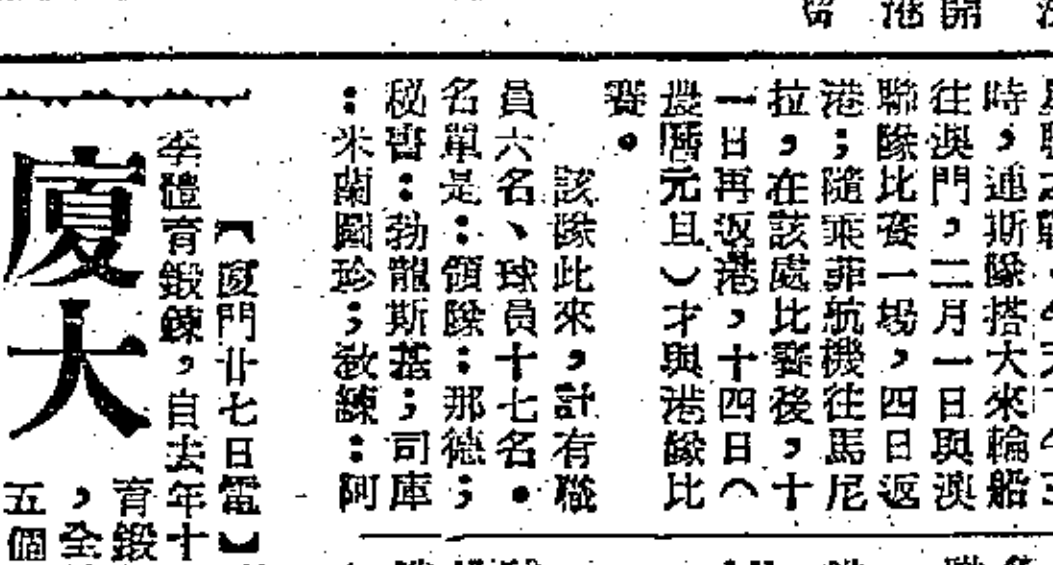 時，連斯隊搭大來輪船
往澳門，二月一日與澳
聯隊比賽一場，四日返
港；隨乘菲航機往馬尼
拉，在該處比賽後，十
一日再返港，十四日（
農曆元旦）才與港隊比
賽。
該隊此來，計有職
員六名、球員十七名。
名單是：領隊：那德；
秘書：勃龍斯基；司庫
：米蘭圖珍；敎練：阿
【廈門廿七日電】
季體育鍛鍊，自去年十
育鍛
，全
五個
廈大